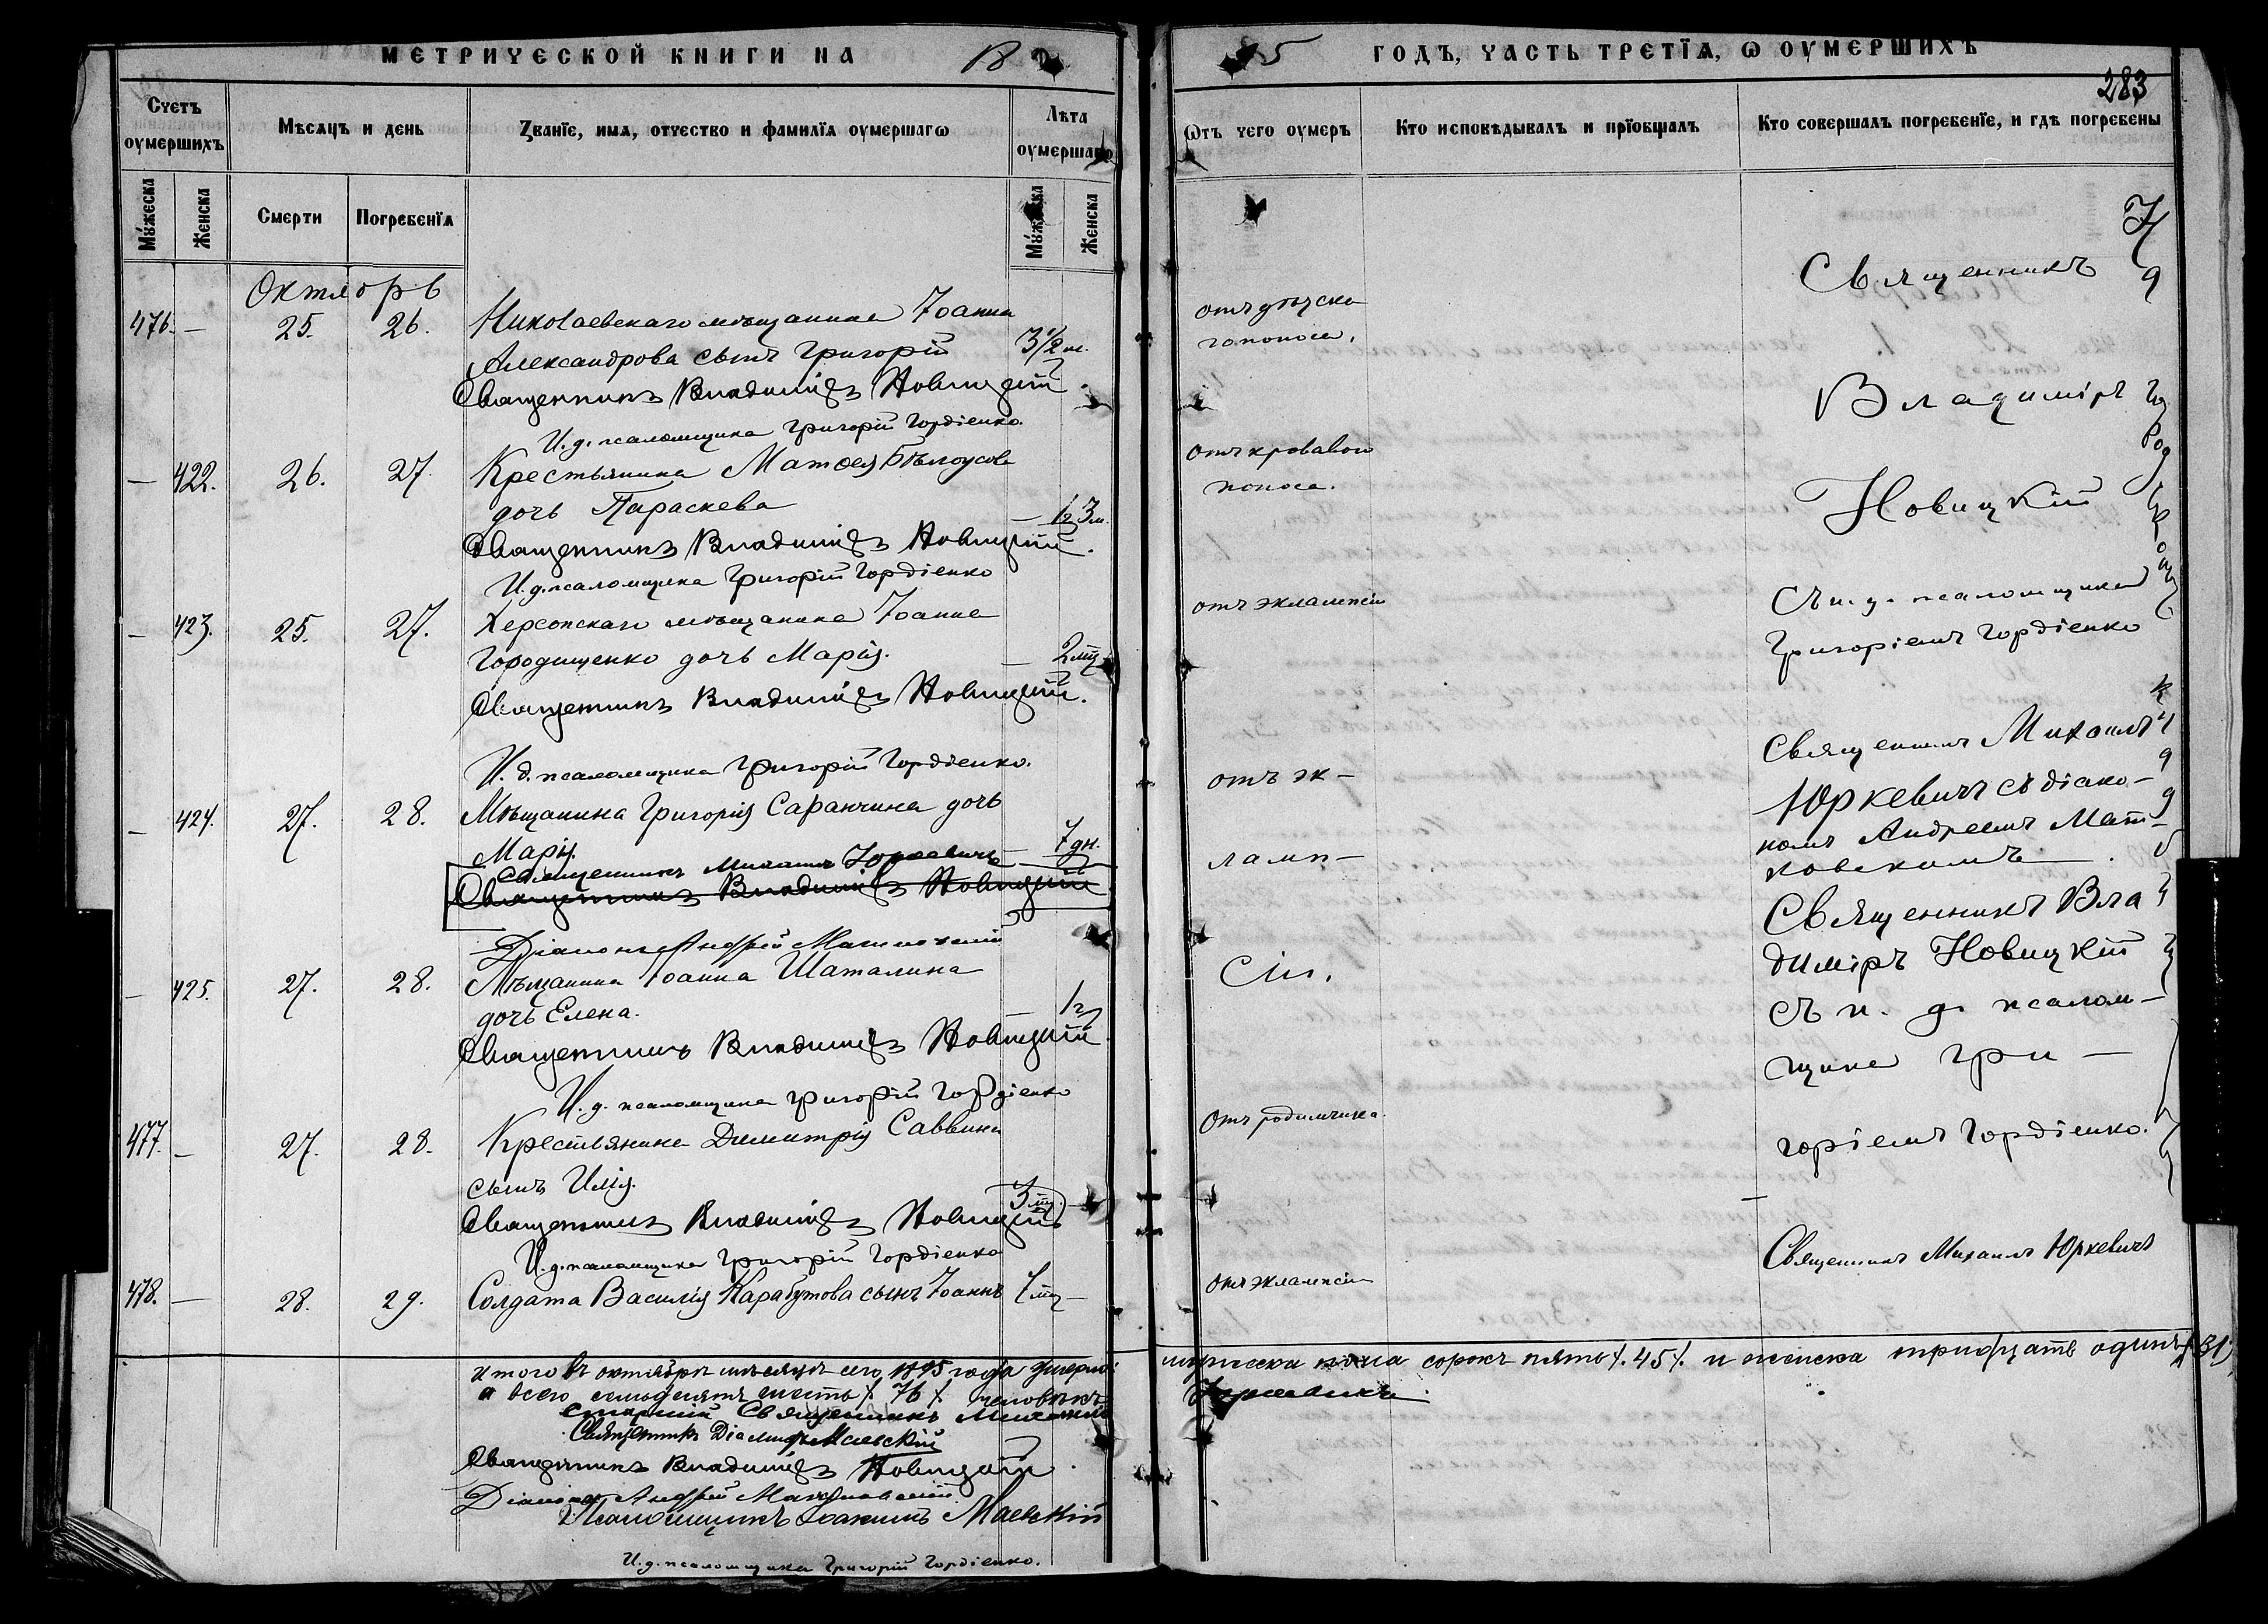 МЕТРИЧЕСКОЙ КНИГИ НА 18
95 ГОДЪ, ЧАСТЬ ТРЕТЇѦ, Ѡ ОУМЕРШИХЪ
283
Счетъ оумершихъ
Мѣсѧцъ и день
Званїе, имѧ, отчество и фамилїѧ оумершагѡ
Лѣта оумершагѡ
Ѿтъ чего оумеръ
Кто исповѣдывалъ и прїобщалъ
Кто совершалъ погребенїе, и гдѣ погребены
Мужеска
Женска
Смерти
Погребенїѧ
Мужеска
Женска
Октябрь
476. — 25. 26. Николаевскаго мѣщанина Іоанна
Александрова сынъ Григорій 3½ м.
Священникъ Владиміръ Новицкій.
И. д. псаломщика Григорій Гордіенко.
отъ дѣтска
го поноса.
— 422. 26. 27. Крестьянина Матѳея Бѣлоусова
дочь Параскева — 1г 3м.
Священникъ Владиміръ Новицкій.
И. д. псаломщика Григорій Гордіенко
отъ кроваваго
поноса.
— 423. 25. 27. Херсонскаго мѣщанина Іоанна
Городищенко дочь Марія. — 2 мц
Священникъ Владиміръ Новицкій.
И. д. псаломщика Григорій Гордіенко.
отъ экламписіи
— 424. 27. 28. Мѣщанина Григорія Саранчина дочь
Марія. — 7 дн.
Священникъ Михаилъ Юркевичъ
Священникъ Владиміръ Новицкій
Діаконъ Андрей Матковскій
отъ эк-
ламп-
— 425. 27. 28. Мѣщанина Іоанна Шаталина
дочь Елена. — 1г
Священникъ Владиміръ Новицкій.
И. д. псаломщика Григорій Гордіенко
сіи.
477. — 27. 28. Крестьянина Димитрія Саввина
сынъ Илія. 3 мц.
Священникъ Владиміръ Новицкій
И. д. псаломщика Григорій Гордіенко
Отъ родимчика.
478. — 28. 29. Солдата Василія Карабутова сынъ Іоаннъ 1 мц —
отъ экламписіи
Священникъ
Владиміръ
Новицкій
съ и. д. псаломщика
Григоріемъ Гордіенко
Священникъ Михаилъ
Юркевичъ съ діако-
номъ Андреемъ Мат-
ковскимъ.
Священникъ Вла
диміръ Новицкій
съ и. д. псалом-
щика Гри-
горіемъ Гордіенко.
Священникъ Михаилъ Юркевичъ
Итого въ октябрѣ мѣсяцѣ сего 1895 года умерло мужеска пола сорокъ пять /. 45 /. и женска тридцать одинъ /. 31)
а всего семьдесятъ шесть /. 76 /. человѣкъ
Старшій Священникъ Михаилъ Юркевичъ.
Священникъ Маевскій
Священникъ Владиміръ Новицкій.
Діаконъ Андрей Матковскій
Псаломщикъ Іоакимъ Маевскій
И. д. псаломщика Григорій Гордіенко.